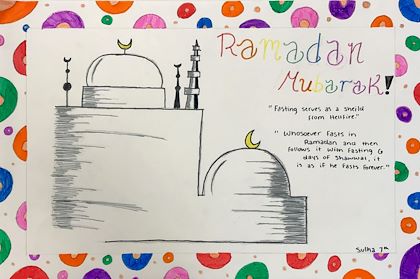 Ramadan
Mubarak!
"Fasting serves as a sheild
from Hellfire."
"Whosoever fasts in
Ramadan and then
follows it with fasting 6
days of Shawwal, it
is as if he fasts forever."
Sulha 7th